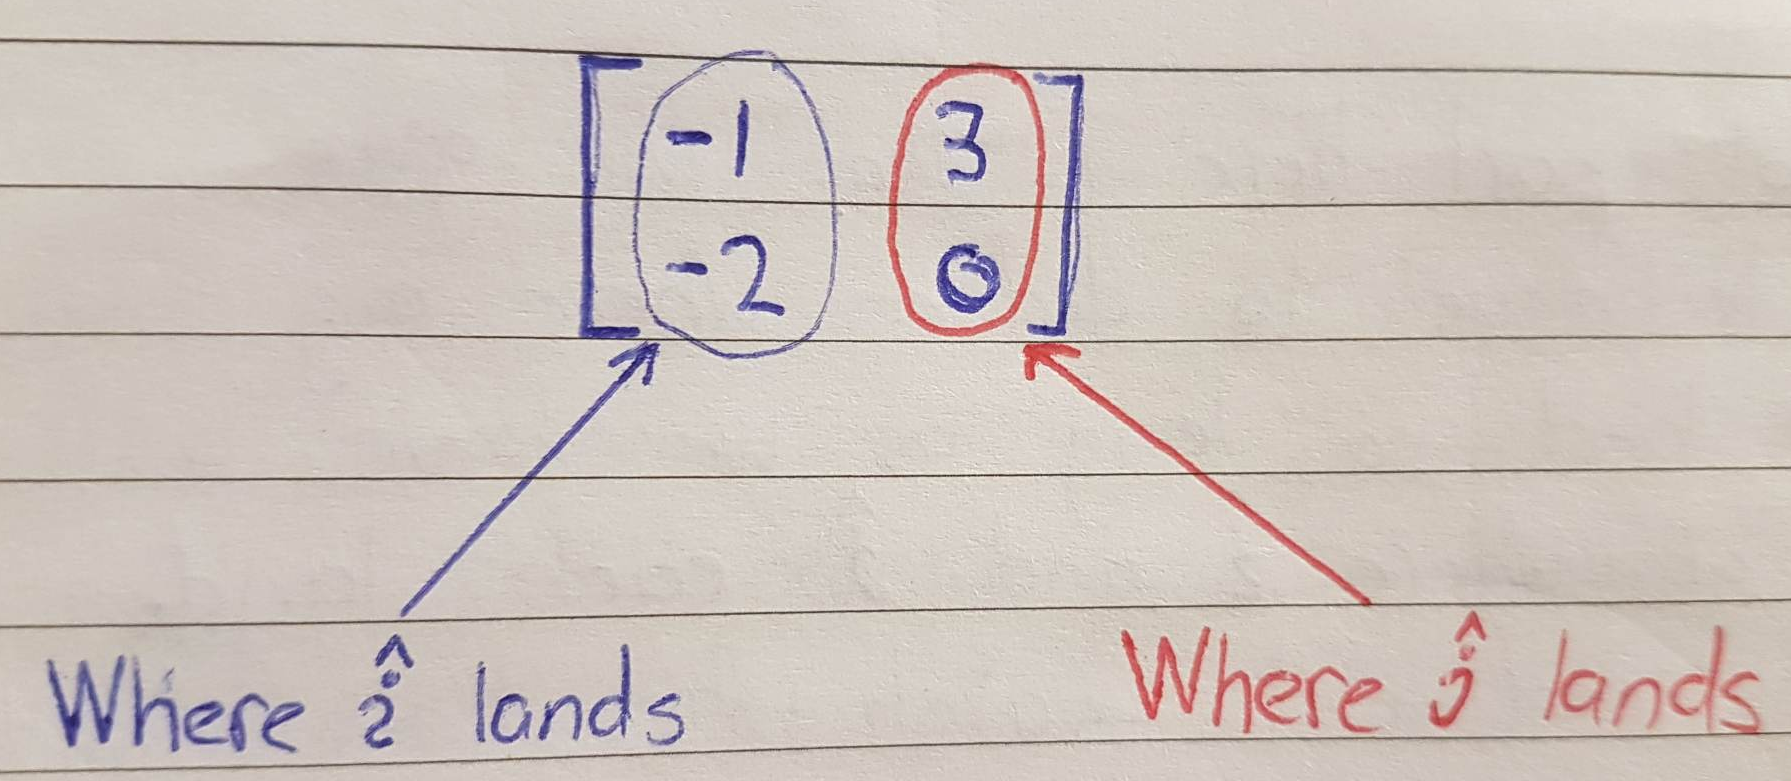 [ -1 3 ]
[ -2 0 ]
Where î lands
Where ĵ lands